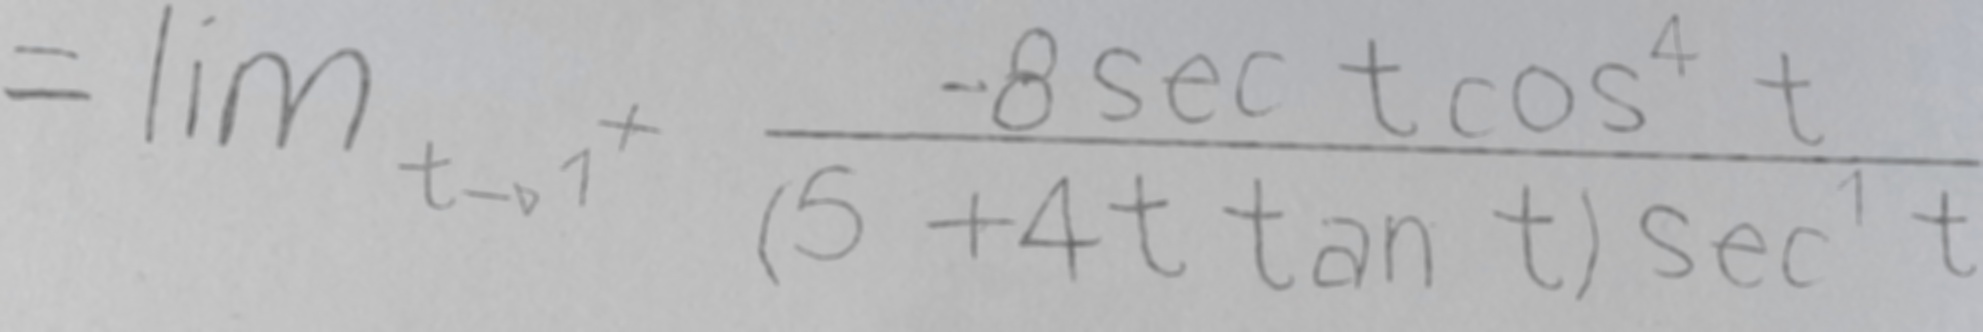 = lim_{t→1^+} \frac{-8 sec t cos^4 t}{(5 + 4t tan t) sec^1 t}